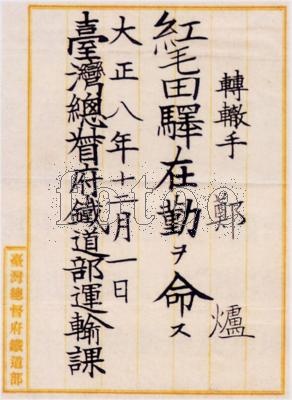 轉轍手 鄭 爐
紅毛田驛在勤ヲ命ス
大正八年十二月一日
臺灣總督府鐵道部運輸課
臺灣總督府鐵道部